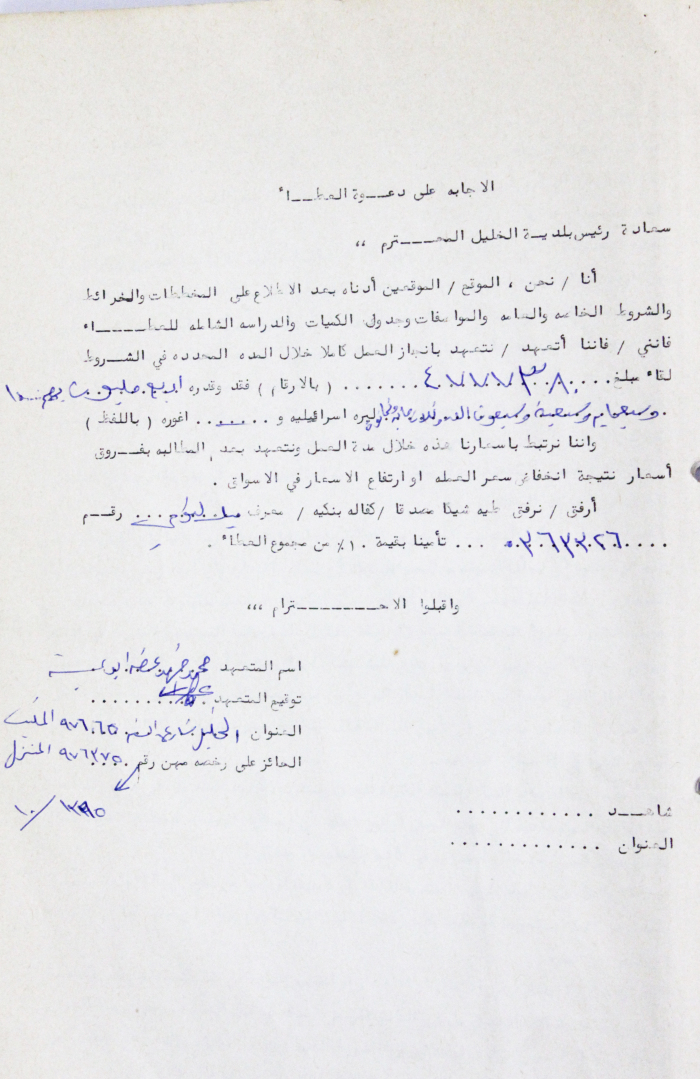 الاجابه على دعـــوة العطـــاء
سعادة رئيس بلديـــة الخليل المحـــترم ،،
أنا / نحن ، الموقع / الموقعين أدناه بعد الاطلاع على المخططات والخرائط
والشروط الخاصه والعامه والمواصفات وجدول الكميات والدراسه الشامله للعطـــاء
فانني / فاننا أتعهد / نتعهد بانجاز العمل كاملا خلال المده المحدده في الشـــروط
لقاء مبلغ .... ( بالارقام ) فقد وقدره اربع مليون
وسبعمايه وسبعة وسبعون الف ليره اسرائيليه و ...... اغوره ( باللفظ )
واننا نرتبط باسعارنا هذه خلال مدة العمل ونتعهد بعدم المطالبه بفـــروق
أسعار نتيجة انخفاض سعر العمله او ارتفاع الاسعار في الاسواق .
أرفق / نرفق طيه شيكا مصدقا / كفاله بنكيه / مصرف ... رقـــم
.... ٣٦٣٣٠٢٦ ... تأمينا بقيمة ١٠٪ من مجموع العطاء .
واقبلوا الاحـــترام ،،،
اسم المتعهد محمد
توقيع المتعهد ..........
العنوان الخليل شارع ٩٧٦٠٦٥ المكتب
الحائز على رخصه مهن رقم ٩٧٦٣٧٥ المنزل
شاهـــد ............
العنوان .............